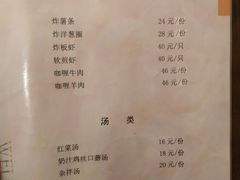 炸薯条 24 元/份
炸洋葱圈 28 元/份
炸板虾 40 元/只
软煎虾 40 元/只
咖喱牛肉 46 元/份
咖喱羊肉 46 元/份
汤 类
红菜汤 16 元/份
奶汁鸡丝口蘑汤 18 元/份
杂拌汤 20 元/份
WEL